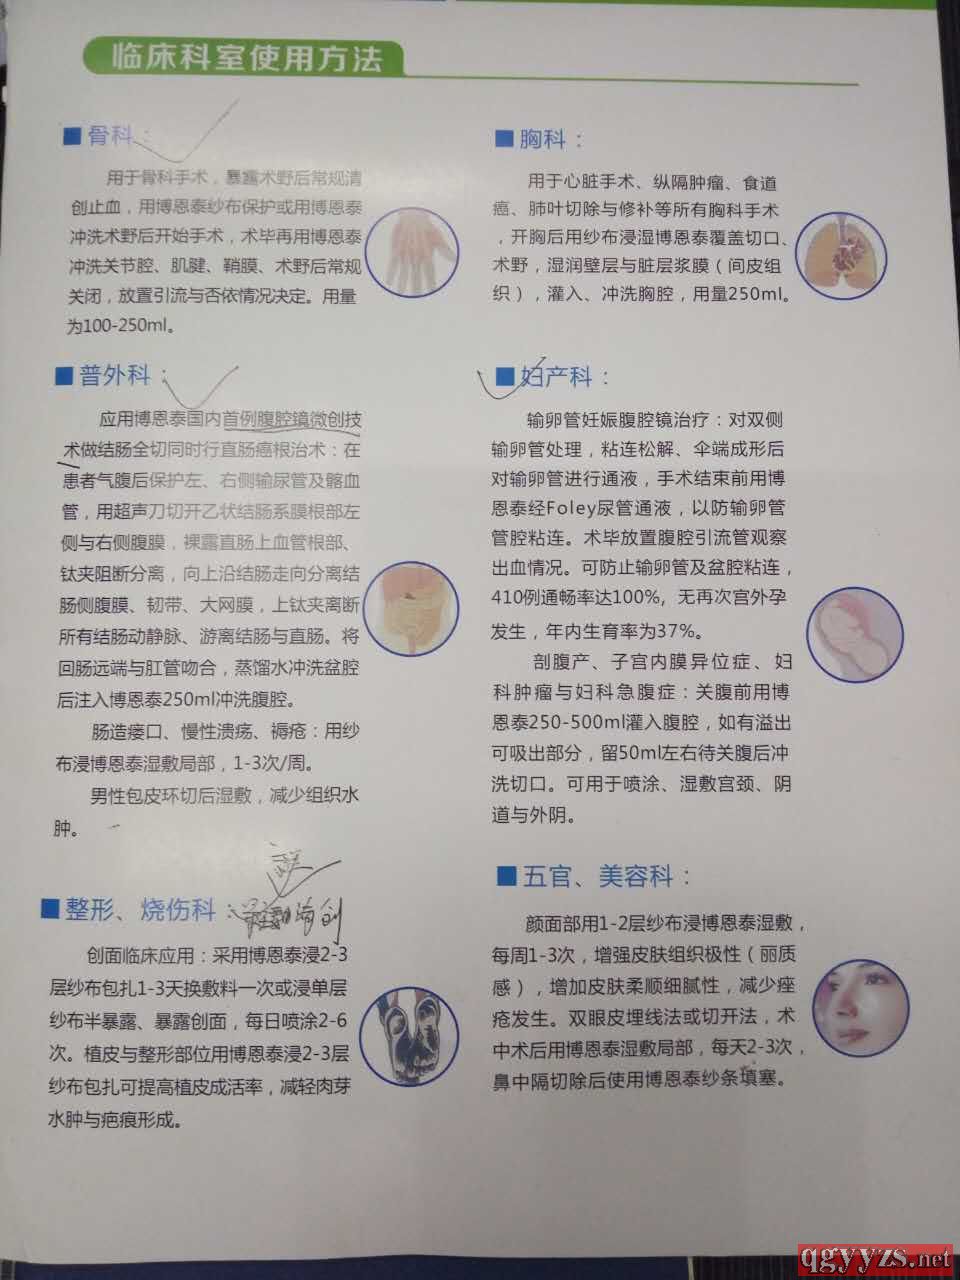 临床科室使用方法
骨科：
用于骨科手术，暴露术野后常规清
创止血，用博恩泰纱布保护或用博恩泰
冲洗术野后开始手术，术毕再用博恩泰
冲洗关节腔、肌腱、鞘膜、术野后常规
关闭，放置引流与否依情况决定。用量
为100-250ml。
普外科：
应用博恩泰国内首例腹腔镜微创技
术做结肠全切同时行直肠癌根治术：在
患者气腹后保护左、右侧输尿管及髂血
管，用超声刀切开乙状结肠系膜根部左
侧与右侧腹膜，裸露直肠上血管根部、
钛夹阻断分离，向上沿结肠走向分离结
肠侧腹膜、韧带、大网膜，上钛夹离断
所有结肠动静脉、游离结肠与直肠。将
回肠远端与肛管吻合，蒸馏水冲洗盆腔
后注入博恩泰250ml冲洗腹腔。
肠造瘘口、慢性溃疡、褥疮：用纱
布浸博恩泰湿敷局部，1-3次/周。
男性包皮环切后湿敷，减少组织水
肿。
整形、烧伤科：
创面临床应用：采用博恩泰浸2-3
层纱布包扎1-3天换敷料一次或浸单层
纱布半暴露、暴露创面，每日喷涂2-6
次。植皮与整形部位用博恩泰浸2-3层
纱布包扎可提高植皮成活率，减轻肉芽
水肿与疤痕形成。
胸科：
用于心脏手术、纵隔肿瘤、食道
癌、肺叶切除与修补等所有胸科手术
，开胸后用纱布浸湿博恩泰覆盖切口、
术野，湿润壁层与脏层浆膜（间皮组
织），灌入、冲洗胸腔，用量250ml。
妇产科：
输卵管妊娠腹腔镜治疗：对双侧
输卵管处理，粘连松解、伞端成形后
对输卵管进行通液，手术结束前用博
恩泰经Foley尿管通液，以防输卵管
管腔粘连。术毕放置腹腔引流管观察
出血情况。可防止输卵管及盆腔粘连，
410例通畅率达100%，无再次宫外孕
发生，年内生育率为37%。
剖腹产、子宫内膜异位症、妇
科肿瘤与妇科急腹症：关腹前用博
恩泰250-500ml灌入腹腔，如有溢出
可吸出部分，留50ml左右待关腹后冲
洗切口。可用于喷涂、湿敷宫颈、阴
道与外阴。
五官、美容科：
颜面部用1-2层纱布浸博恩泰湿敷，
每周1-3次，增强皮肤组织极性（丽质
感），增加皮肤柔顺细腻性，减少痤
疮发生。双眼皮埋线法或切开法，术
中术后用博恩泰湿敷局部，每天2-3次，
鼻中隔切除后使用博恩泰纱条填塞。
qgyyzs.net